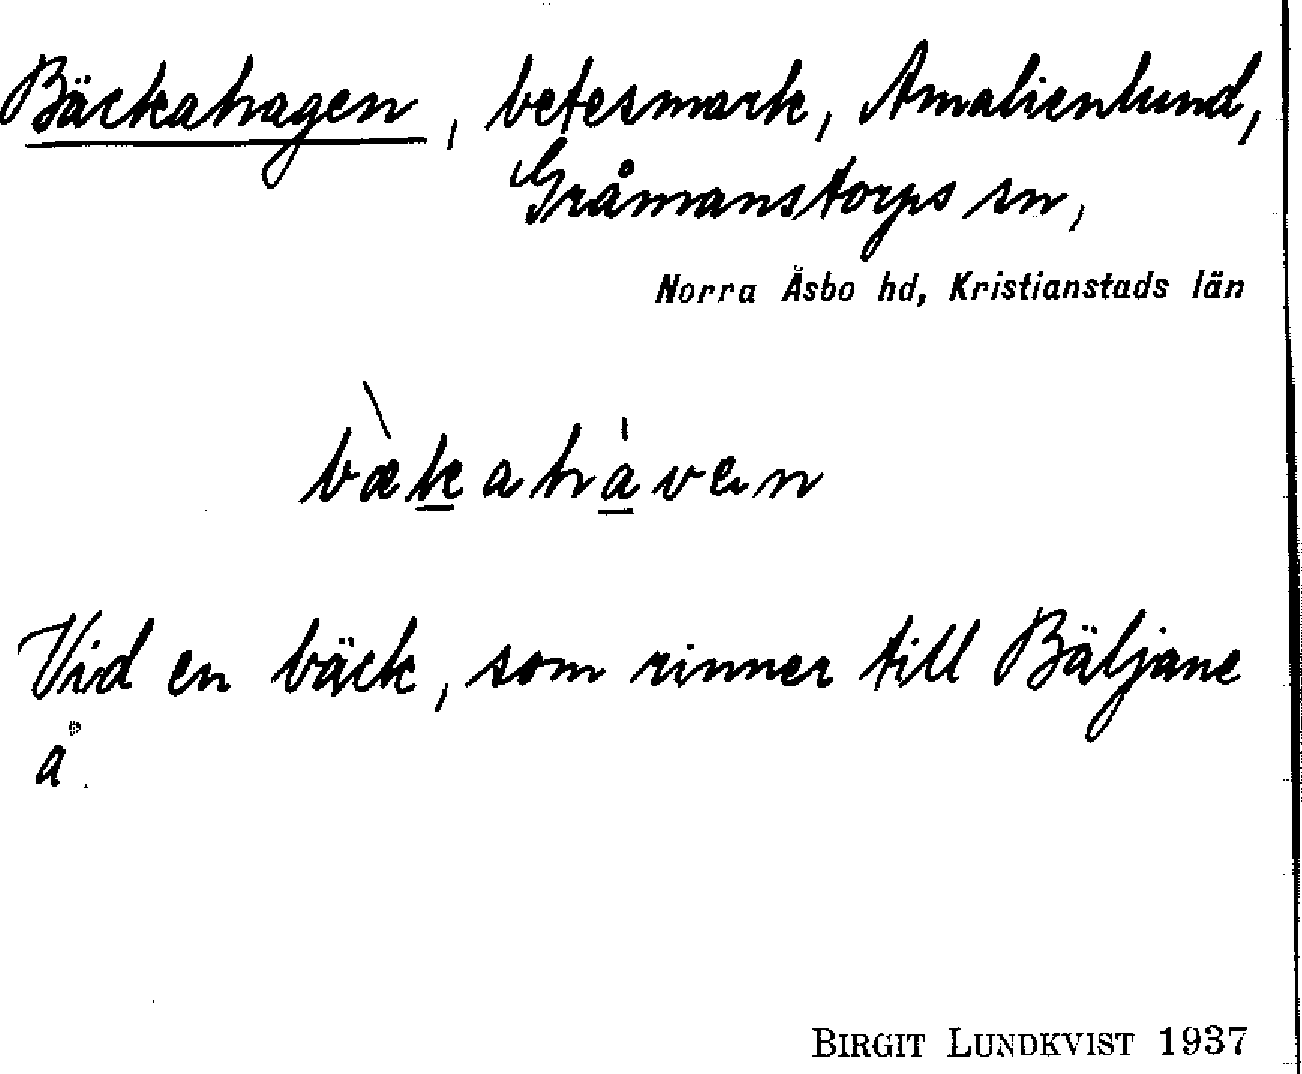 Bäckahagen, betesmark, Amalienlund,
Gråmanstorps sn,
Norra Åsbo hd, Kristianstads län
bækahaven
Vid en bäck, som rinner till Bäljane
å.
BIRGIT LUNDKVIST 1937